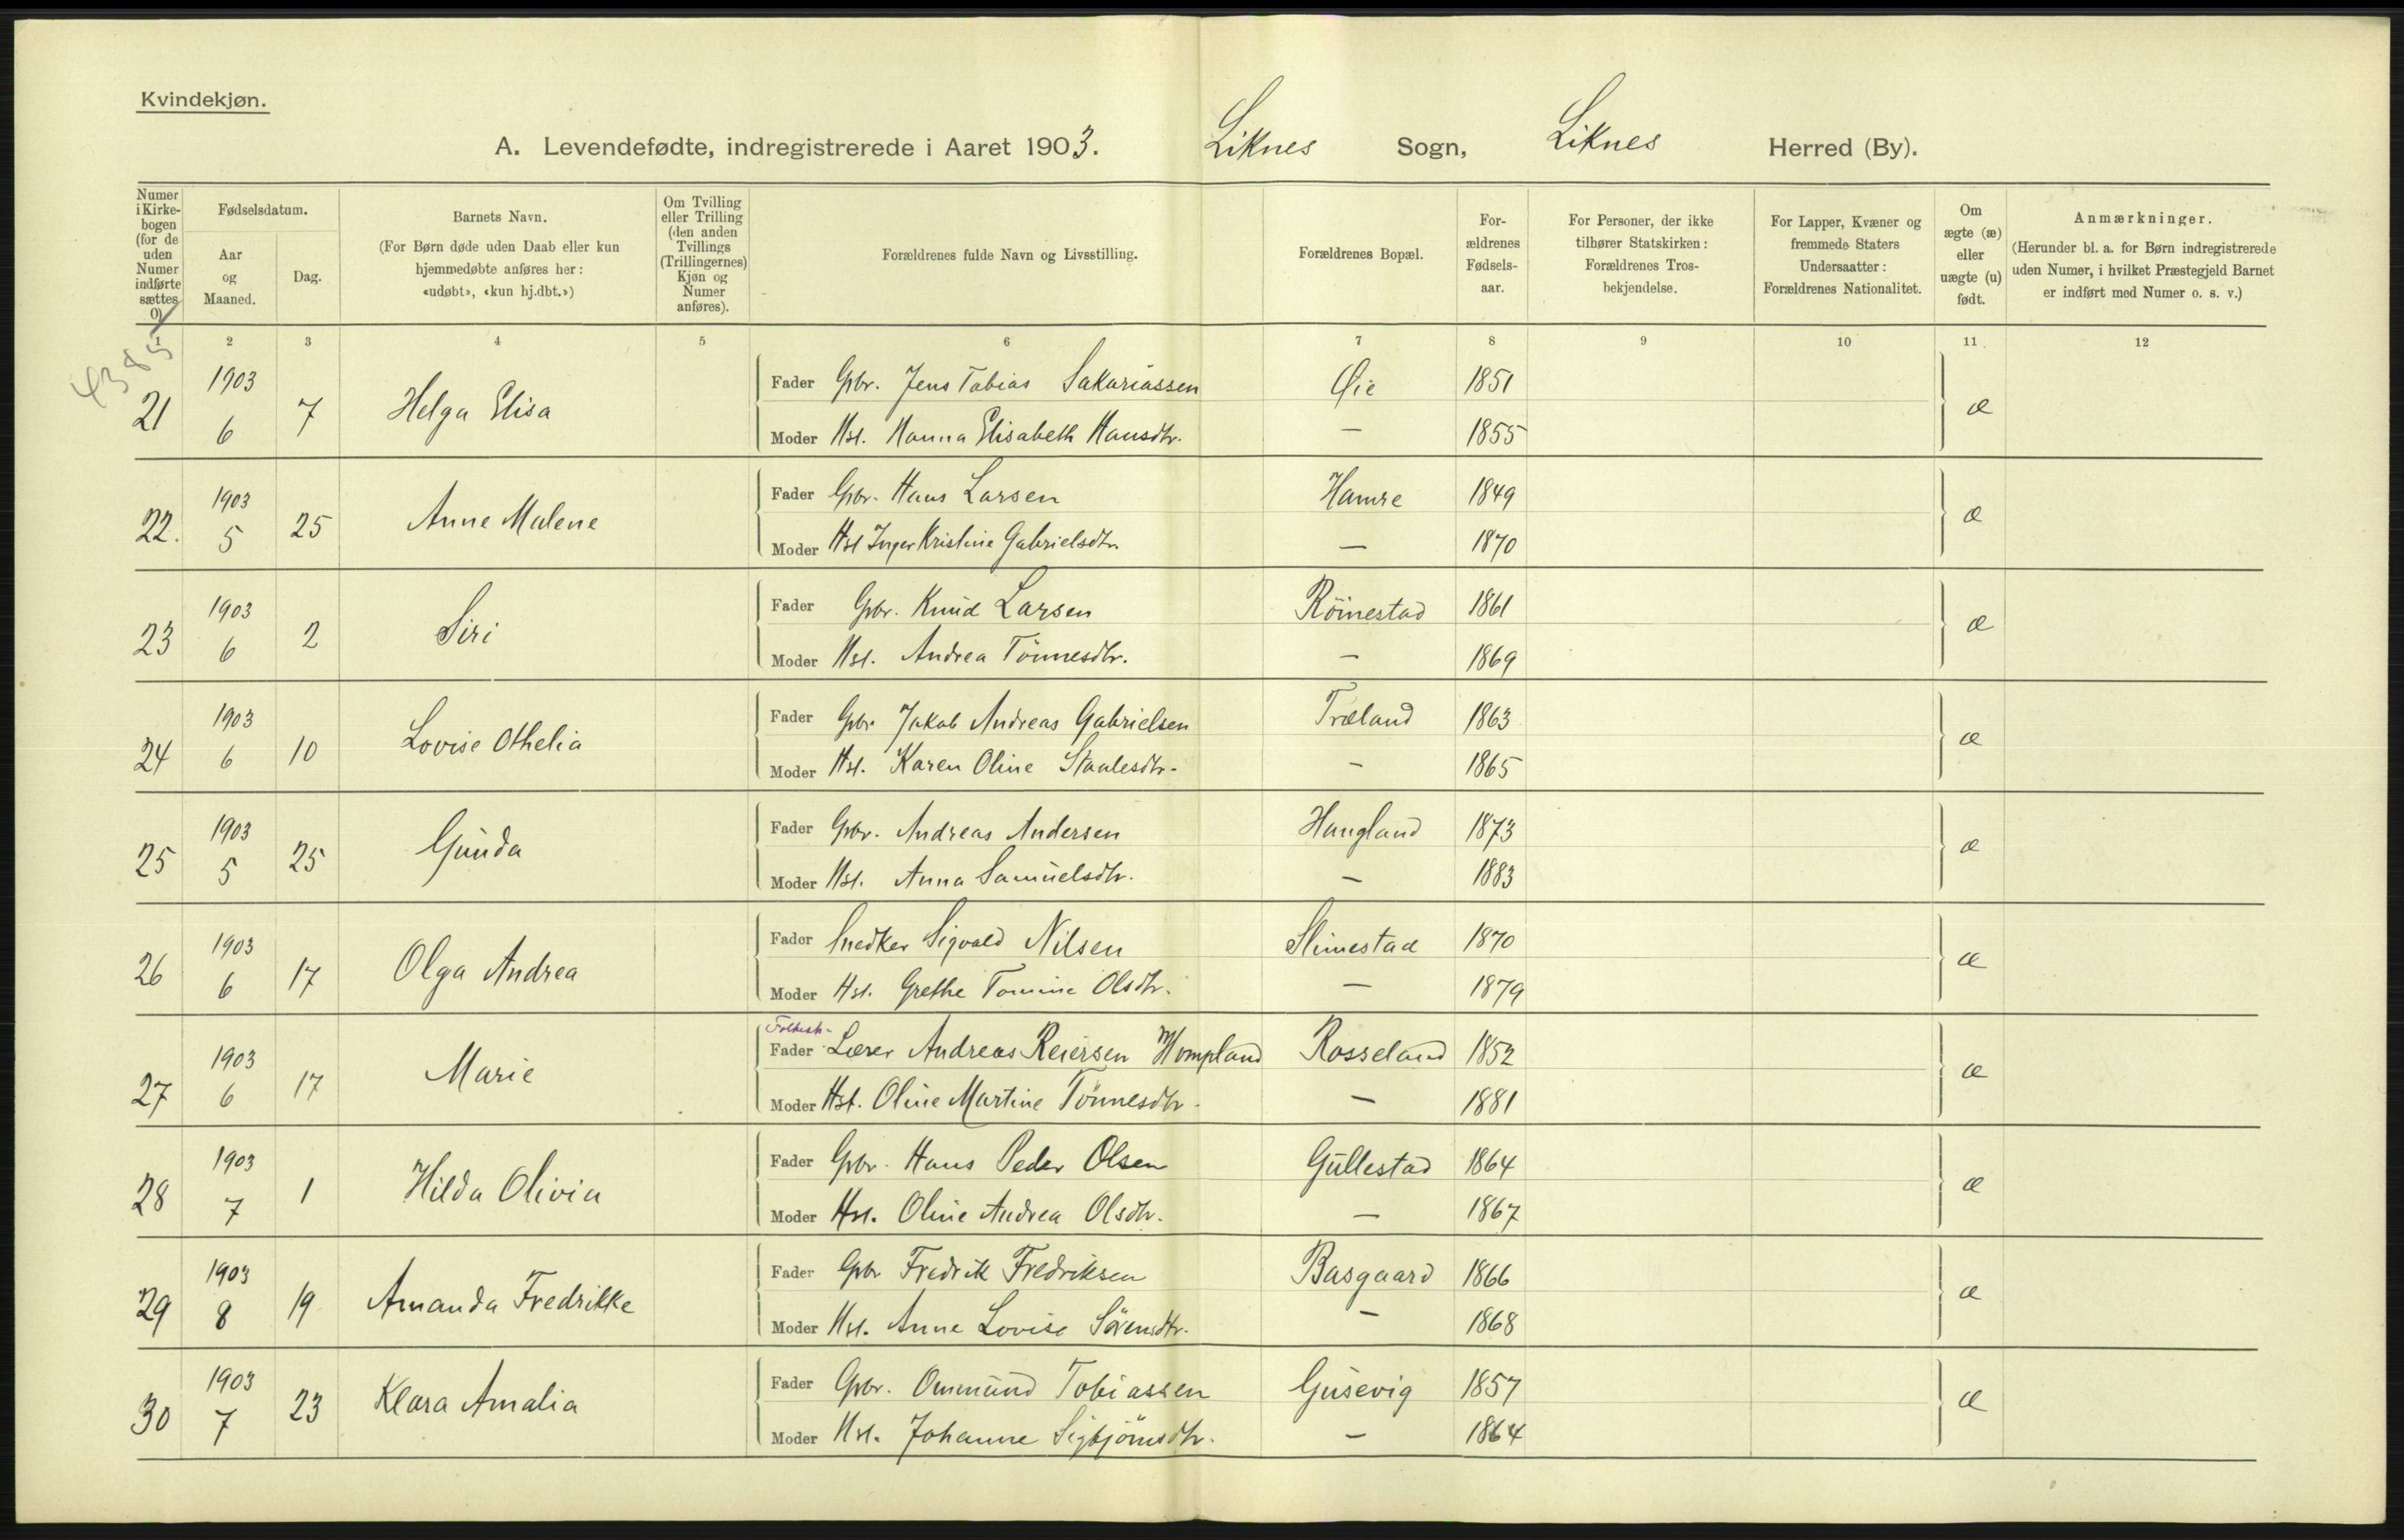 Kvindekjøn.
A. Levendefødte, indregistrerede i Aaret 1903. Liknes Sogn, Liknes Herred (By).
Numer i Kirke-bogen (for de uden Numer indførte sættes 0)
Fødselsdatum.
Aar og Maaned.
Dag.
Barnets Navn.
(For Børn døde uden Daab eller kun hjemmedøbte anføres her: «udøbt», «kun hj.dbt.»)
Om Tvilling eller Trilling (den anden Tvillings (Trillingernes) Kjøn og Numer anføres).
Forældrenes fulde Navn og Livsstilling.
Forældrenes Bopæl.
For-ældrenes Fødsels-aar.
For Personer, der ikke tilhører Statskirken: Forældrenes Tros-bekjendelse.
For Lapper, Kvæner og fremmede Staters Undersaatter: Forældrenes Nationalitet.
Om ægte (æ) eller uægte (u) født.
Anmærkninger.
(Herunder bl. a. for Børn indregistrerede uden Numer, i hvilket Præstegjeld Barnet er indført med Numer o. s. v.)
1 2 3 4 5 6 7 8 9 10 11 12
4385
21 1903 6 7 Helga Elisa Fader Gbr. Jens Tobias Sakariassen Øie 1851 æ
Moder Hst. Hanna Elisabeth Hansdtr. — 1855
22. 1903 5 25 Anne Malene Fader Gbr. Hans Larsen Hamre 1849 æ
Moder Hst Inger Kristine Gabrielsdtr. — 1870
23 1903 6 2 Siri Fader Gbr. Knud Larsen Röinestad 1861 æ
Moder Hst. Andrea Tönnesdtr. — 1869
24 1903 6 10 Lovise Othelia Fader Gbr. Jakob Andreas Gabrielsen Træland 1863 æ
Moder Hst. Karen Oline Staalesdtr. - 1865
25 1903 5 25 Gunda Fader Gbr. Andreas Andersen Haugland 1873 æ
Moder Hst. Anna Samuelsdtr. — 1883
26 1903 6 17 Olga Andrea Fader Snedker Sigvald Nilsen Slimestad 1870 æ
Moder Hst. Grethe Tomine Olsdtr. — 1879
27 1903 6 17 Marie Fader Folkesk. Lærer Andreas Reiersen Hompland Rosseland 1852 æ
Moder Hst. Oline Martine Tönnesdtr. — 1881
28 1903 7 1 Hilda Olivia Fader Gbr. Hans Peder Olsen Gullestad 1864 æ
Moder Hst. Oline Andrea Olsdtr. — 1867
29 1903 8 19 Amanda Fredrikke Fader Gbr Fredrik Fredriksen Basgaard 1866 æ
Moder Hst. Anne Lovise Sörensdtr. — 1868
30 1903 7 23 Klara Amalia Fader Gbr. Ommund Tobiassen Gusevig 1857 æ
Moder Hst. Johanne Sigbjörnsdtr. — 1864